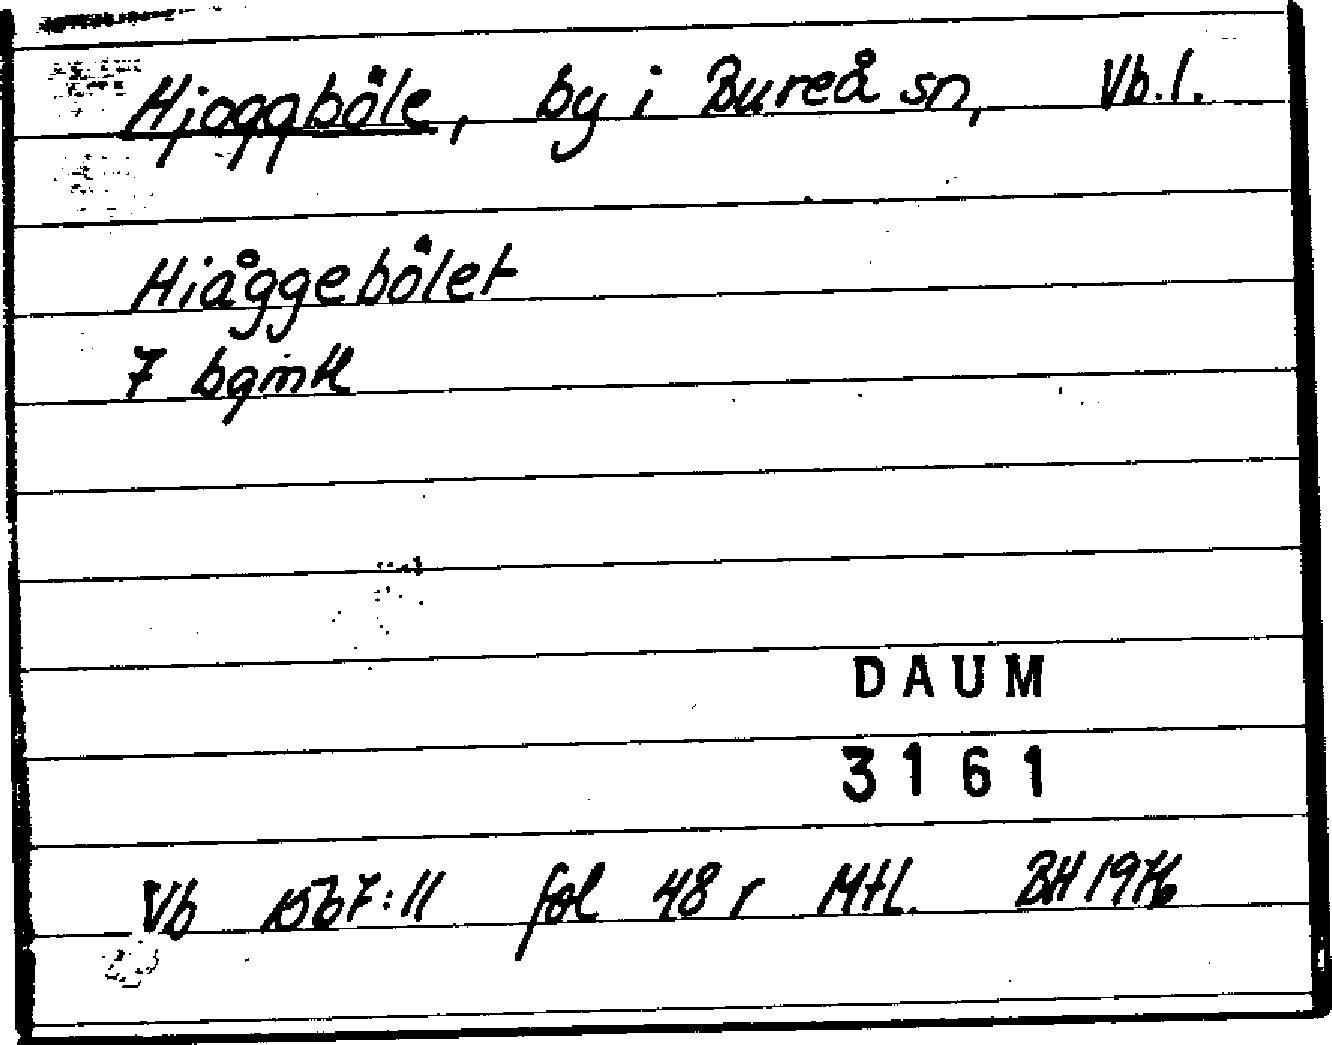 Hjoggböle, by i Bureå sn, Vb.l.
Hiåggebölet
7 bgmtl
DAUM
3161
Vb 1567:11 fol 48 r Mtl. BH 1976